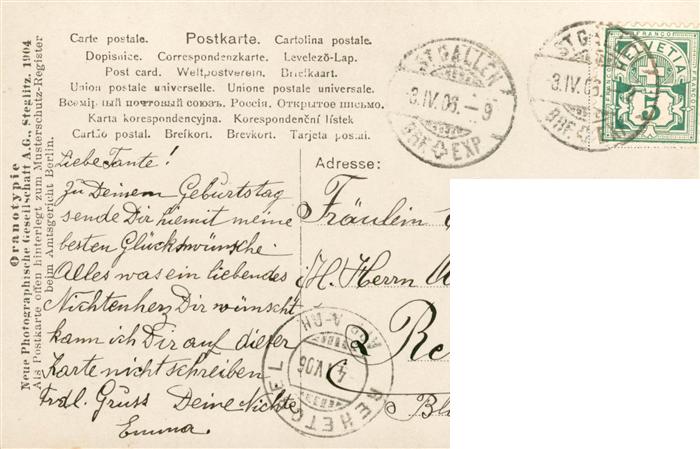 Carte postale. Postkarte. Cartolina postale.
Dopisnice. Correspondenzkarte. Levelező-Lap.
Post card. Weltpostverein. Brietkaart.
Union postale universelle. Unione postale universale.
Всемірный почтовый союзъ. Россія. Открытое письмо.
Karta korespondencyjna. Korespondenční lístek
Cartão postal. Brefkort. Brevkort. Tarjeta postal.
Oranotypie
Neue Photographische Gesellschaft A.G. Steglitz. 1904
Als Postkarte offen hinterlegt zum Musterschutz-Register
beim Amtsgericht Berlin.
ST. GALLEN
3.IV.06.-9
BRF. EXP.
ST. GALLEN
3.IV.06.-9
BRF. EXP.
FRANCO
HELVETIA
5
Liebe Tante!
Zu Deinem Geburtstag
sende Dir hiemit meine
besten Glückswünsche.
Alles was ein liebendes
Nichtenherz Dir wünscht
kann ich Dir auf dieser
Karte nicht schreiben
Frdl. Gruss Deine Nichte
Emma.
Adresse:
Fräulein
H. Herrn
Re
Bl
REHETOBEL
4.IV.06